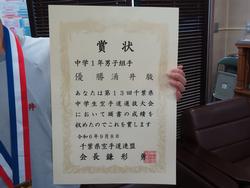 賞状
中学1年男子組手
優勝 涌井 殿
あなたは第13回千葉県
中学生空手道選抜大会
において頭書の成績を
収めたのでこれを賞します
令和6年9月8日
千葉県空手道連盟
会長 鎌形 勇